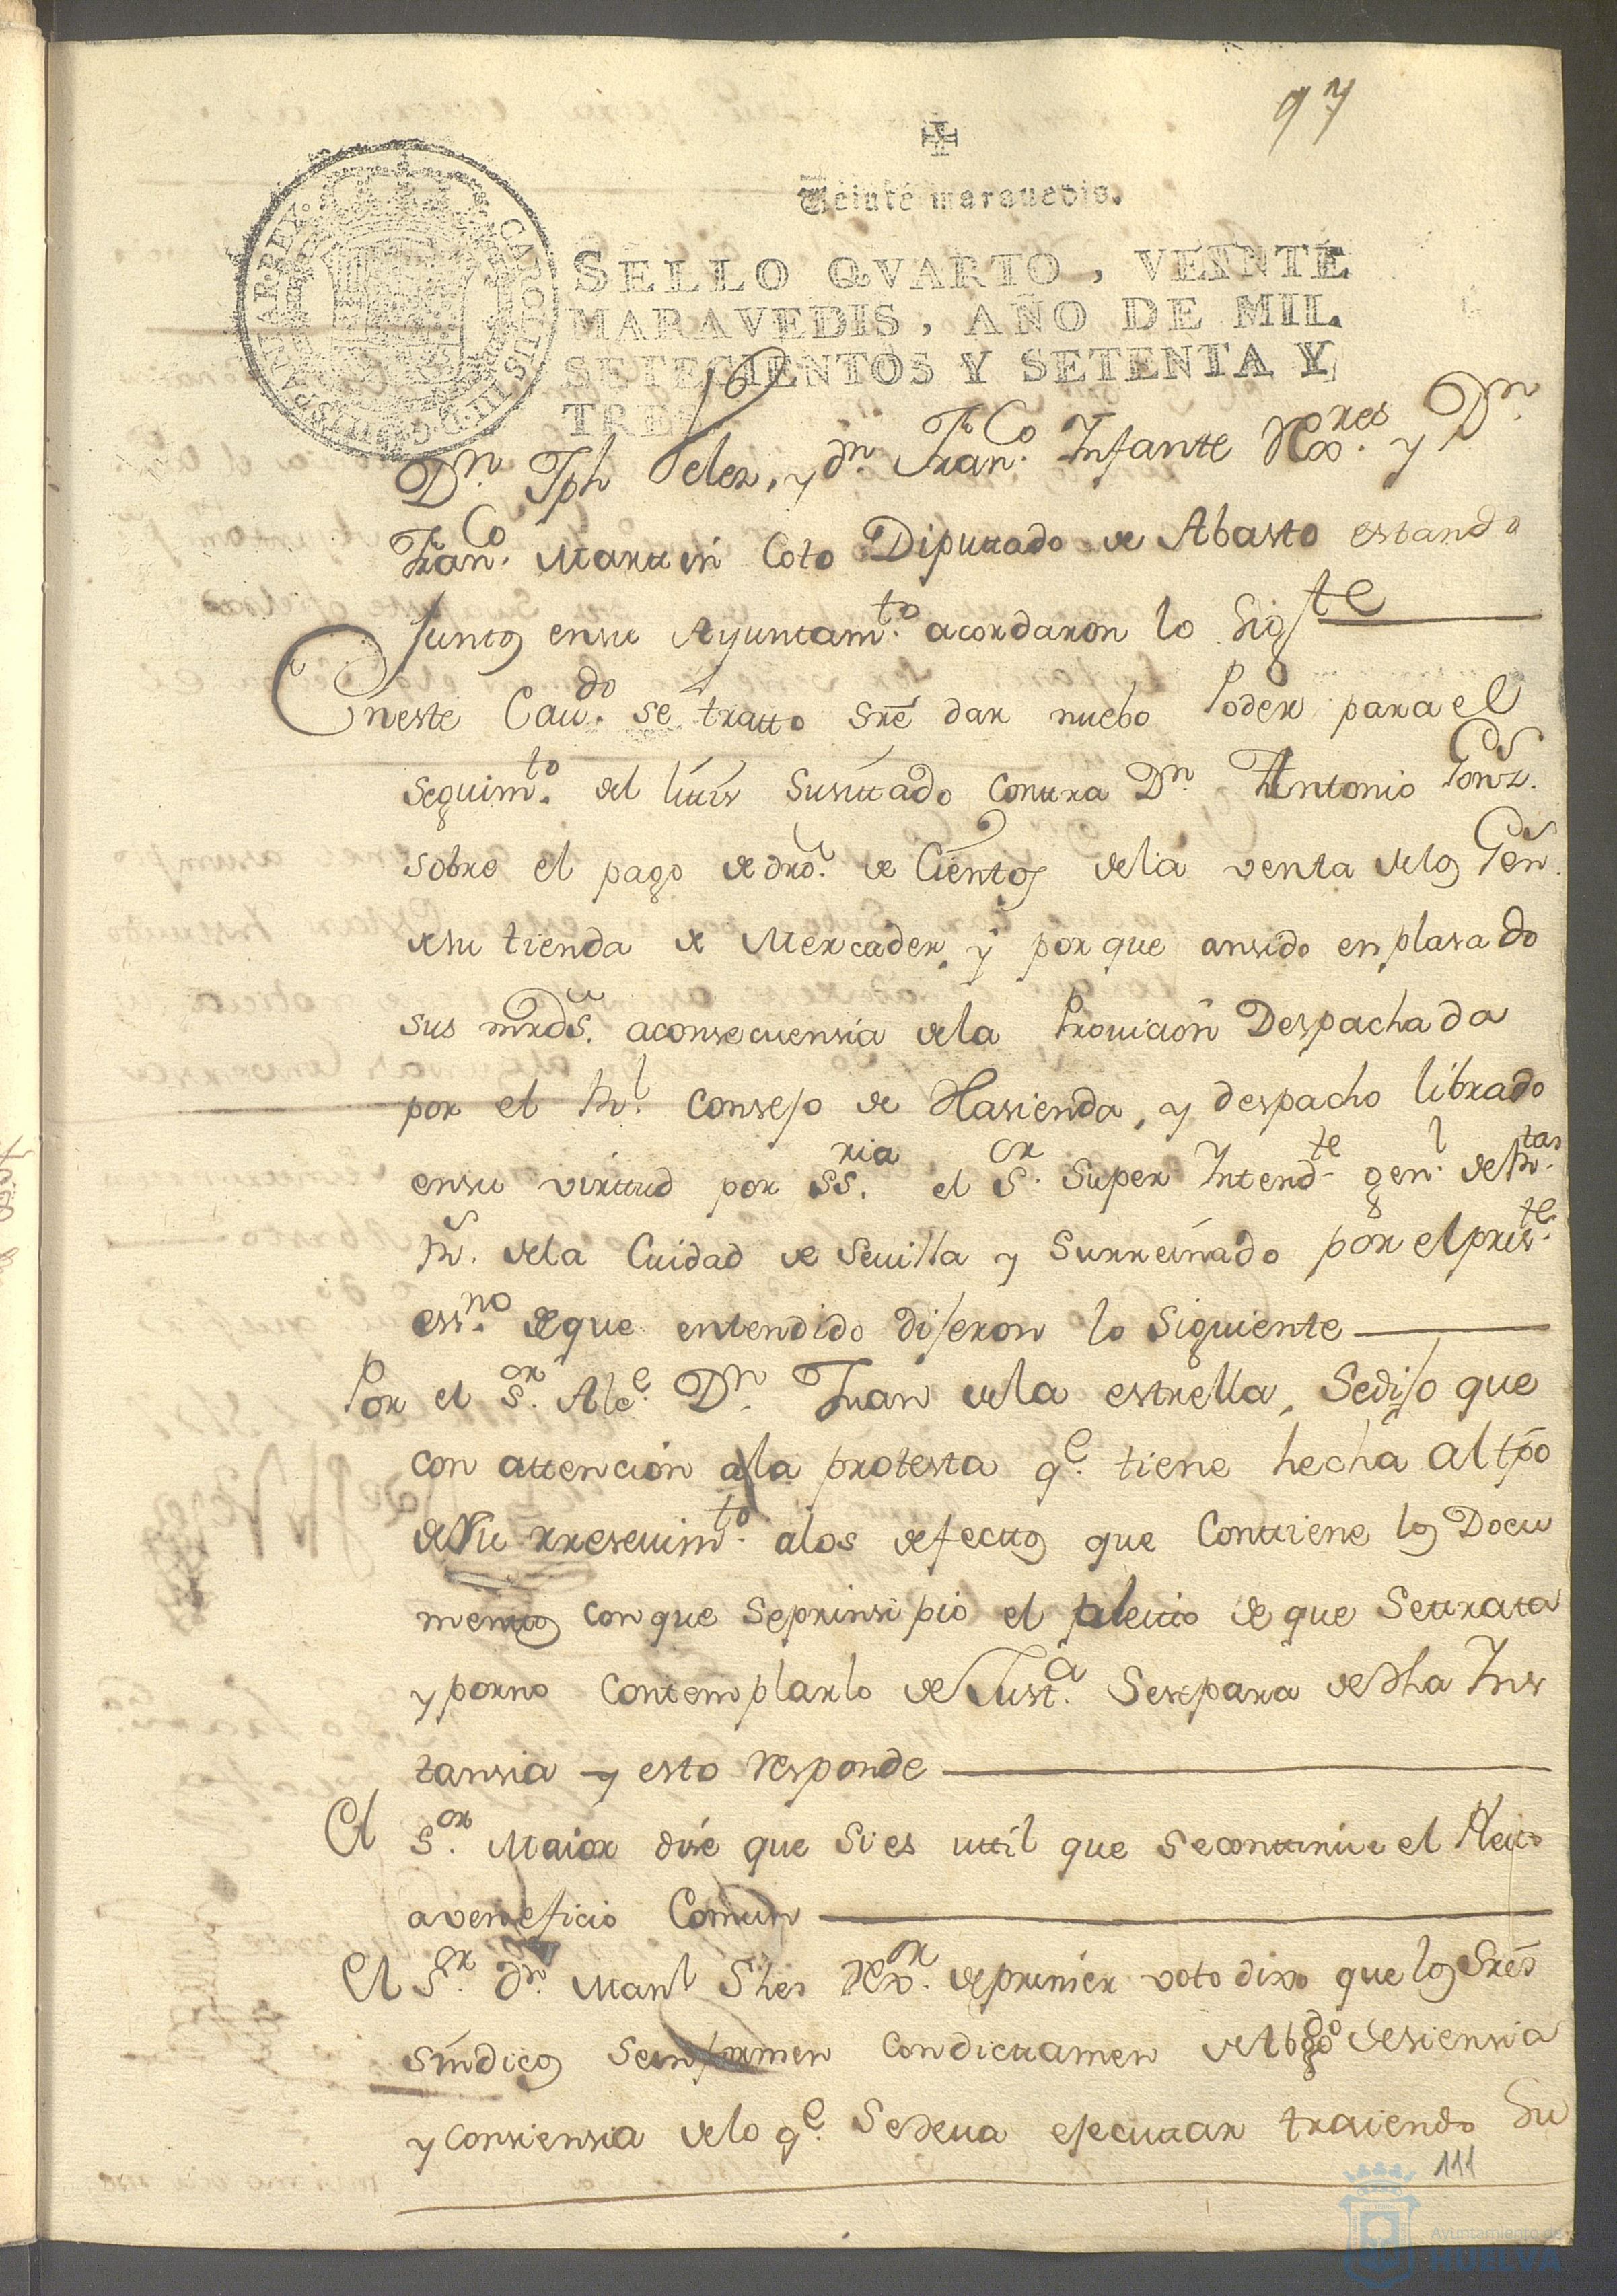 97
Veinte marauedis.
SELLO QVARTO, VEINTE
MARAVEDIS, AÑO DE MIL
SETECIENTOS Y SETENTA Y
TRES
CAROLUS III D G HISPANIAR REX
Dn. Jph Velez, y dn. Franco. Infante Rexres. y Dn.
Franco. Martin Coto Diputado de Abasto estando
Juntos ensu Ayuntamto. acordaron lo Sigte
Eneste Cavdo. se tratto sre dar nuebo Poder para el
seguimto. del litis susitado contra Dn. Antonio Gonz.
sobre el pago de dros. de Cientos dela venta delos Gen.
desu tienda de Mercader, y por que ansido enplasado
sus mrds. aconsecuensia dela Provicion Despachada
por el Rl. Consejo de Hasienda, y despacho librado
ensu virttud por Ssria. el Sor. Super Intendte. genl. de Rtas
Rs. dela Cuidad de Sevilla y Surreinado por el preste.
essno. de que entendido dijeron lo siguiente
Por el Sor. Alce. Dn. Juan dela estrella, Sedijo que
con attencion ala protesta qe. tiene hecha al tpo
desu rresevimto. alos defectos que Conttiene los Docu
mentos conque seprinsipio el pleito de que Settrata
y porno Contemplarlo de Justa. Sesepara de dha Ins
tansia y esto Responde
El Sor. Maior dise que si es uttil que secontinue el Pleito
aveneficio Comun
El Sr. dn. Manl Shes Rexor. deprimer voto dixo que los Sres
sindicos seinformen condictamen de Abgdo desiensia
y consiensia delo qe. Sedeva ejecuttar traiendo Su
111
Ayuntamiento de
HUELVA